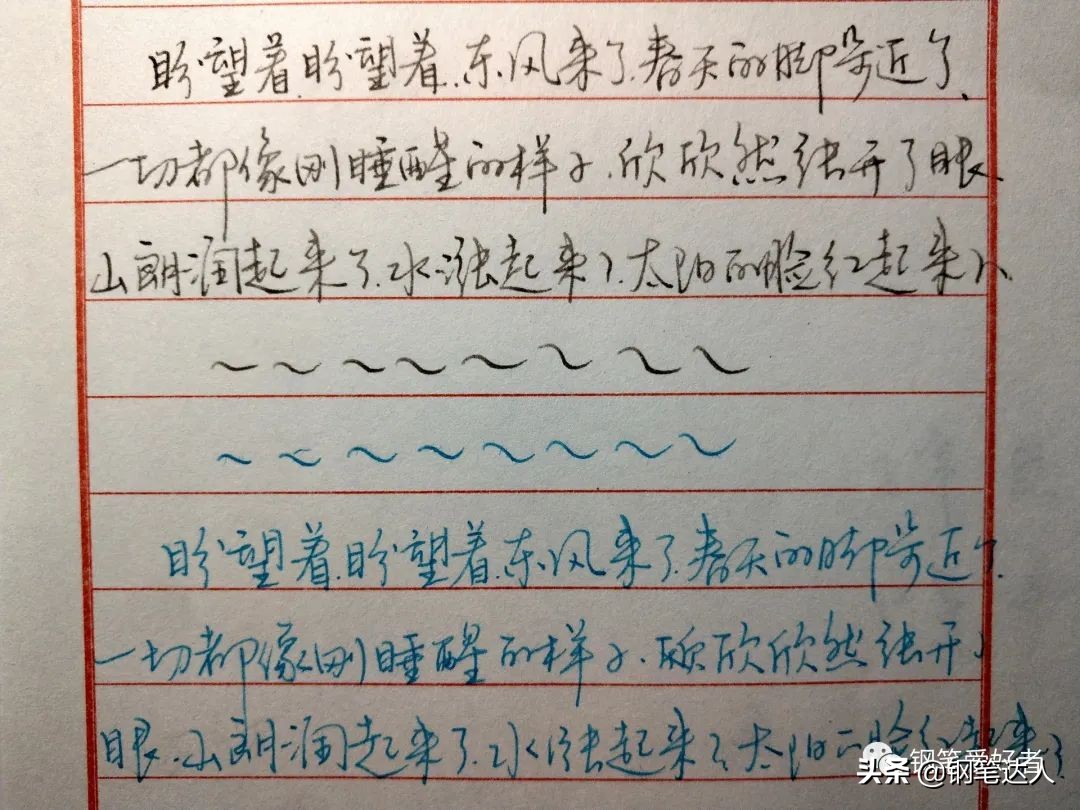 盼望着.盼望着.东风来了.春天的脚步近了.
一切都像刚睡醒的样子.欣欣然张开了眼.
山朗润起来了.水涨起来了.太阳的脸红起来了.
盼望着.盼望着.东风来了.春天的脚步近了.
一切都像刚睡醒的样子.欣欣然张开了
眼.山朗润起来了.水涨起来了.太阳的脸红起来了
钢笔爱好者
头条 @钢笔达人